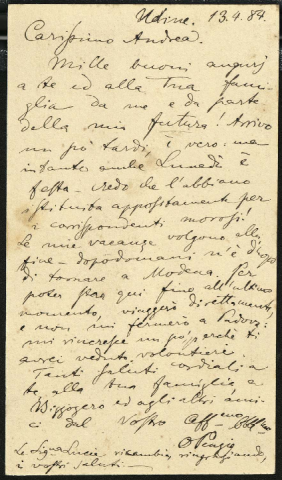 Udine. 13.4.84.
Carissimo Andrea.
Mille buoni augurj
a te ed alla tua fami-
glia da me e da parte
della mia futura! Arrivo
un pò tardi, è vero, ma
intanto anche Lunedì è
festa - credo che l'abbiano
istituita appositamente per
i corrispondenti morosi!
Le mie vacanze volgono alla
fine - dopodomani m'è d'uopo
di tornare a Modena. Per
poter star qui fino all'ultimo
momento, viaggerò direttamente,
e non mi fermerò a Padova:
mi rincresce un po', perchè ti
avrei veduto volontieri.
Tanti saluti cordiali a
te alla tua famiglia, a
ed agli altri ami-
ci dal Vostro aff.mo

La Sigra Lucia ricambia, ringraziando,
i vostri saluti -